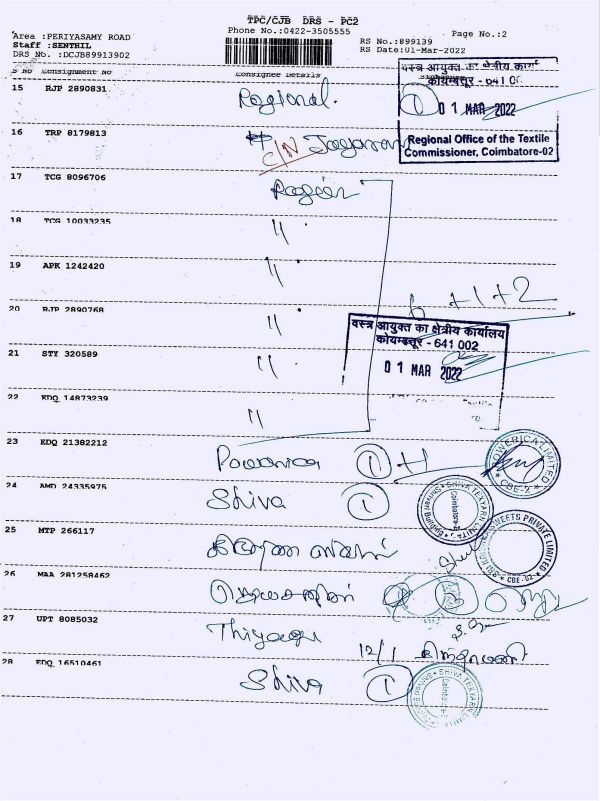 TPC/CJB DRS - PC2
Phone No.:0422-3505555
Page No.:2
Area :PERIYASAMY ROAD
Staff :SENTHIL
DRS No. :DCJB89913902
RS No.:899139
RS Date:01-Mar-2022
S No Consignment No Consignee Details
वस्त्र आयुक्त का क्षेत्रीय कार्या
कोयम्बत्तूर - 641 0
01 MAR 2022
Regional Office of the Textile
Commissioner, Coimbatore-02
15 RJP 2890831 Regional. 1
16 TRP 8179813 C/N Jayaram
17 TCG 8096706
18 TCG 10033235 "
19 APK 1242420 "
6 +1+2
20 RJP 2890768 "
वस्त्र आयुक्त का क्षेत्रीय कार्यालय
कोयम्बत्तूर - 641 002
01 MAR 2022
21 STY 320589 "
22 EDQ 14873239 "
23 EDQ 21382212 Powerica 1
POWERICA LIMITED
CBE-2
24 AMD 24335975 Shiva 1
SHIVA TEXYARN LIMITED
Coimbatore-2
25 MTP 266117
SWEETS PRIVATE LIMITED
CBE-02
26 MAA 281258462
27 UPT 8085032 Thiyagu
12/1
28 EDQ 16510461 Shiva 1
SHIVA TEXYARN LIMITED